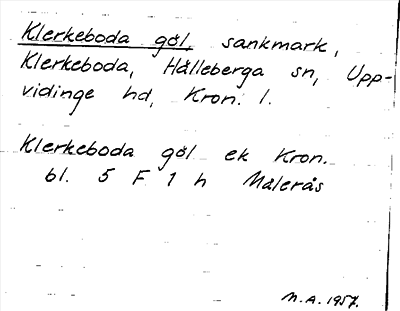 Klerkeboda göl, sankmark,
Klerkeboda, Hälleberga sn, Upp-
vidinge hd, Kron. l.
Klerkeboda göl ek Kron.
bl. 5 F 1 h Målerås
M.A. 1957.